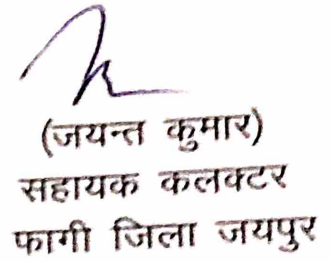 (जयन्त कुमार)
सहायक कलक्टर
फागी जिला जयपुर